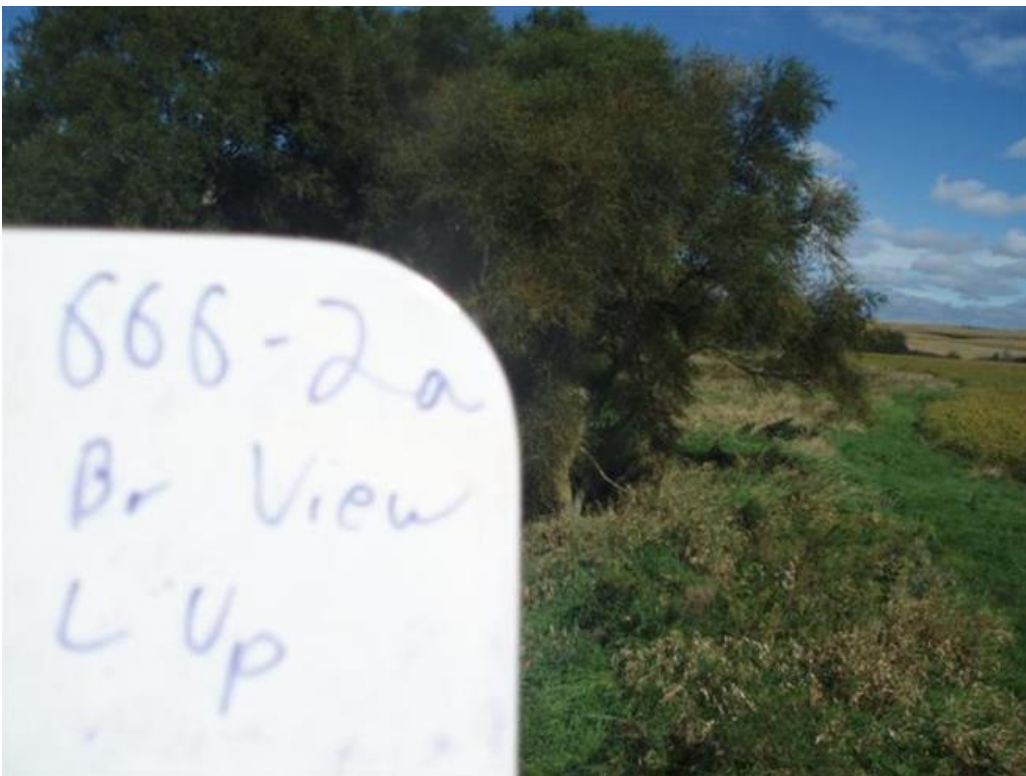 666-2a
Br View
L Up